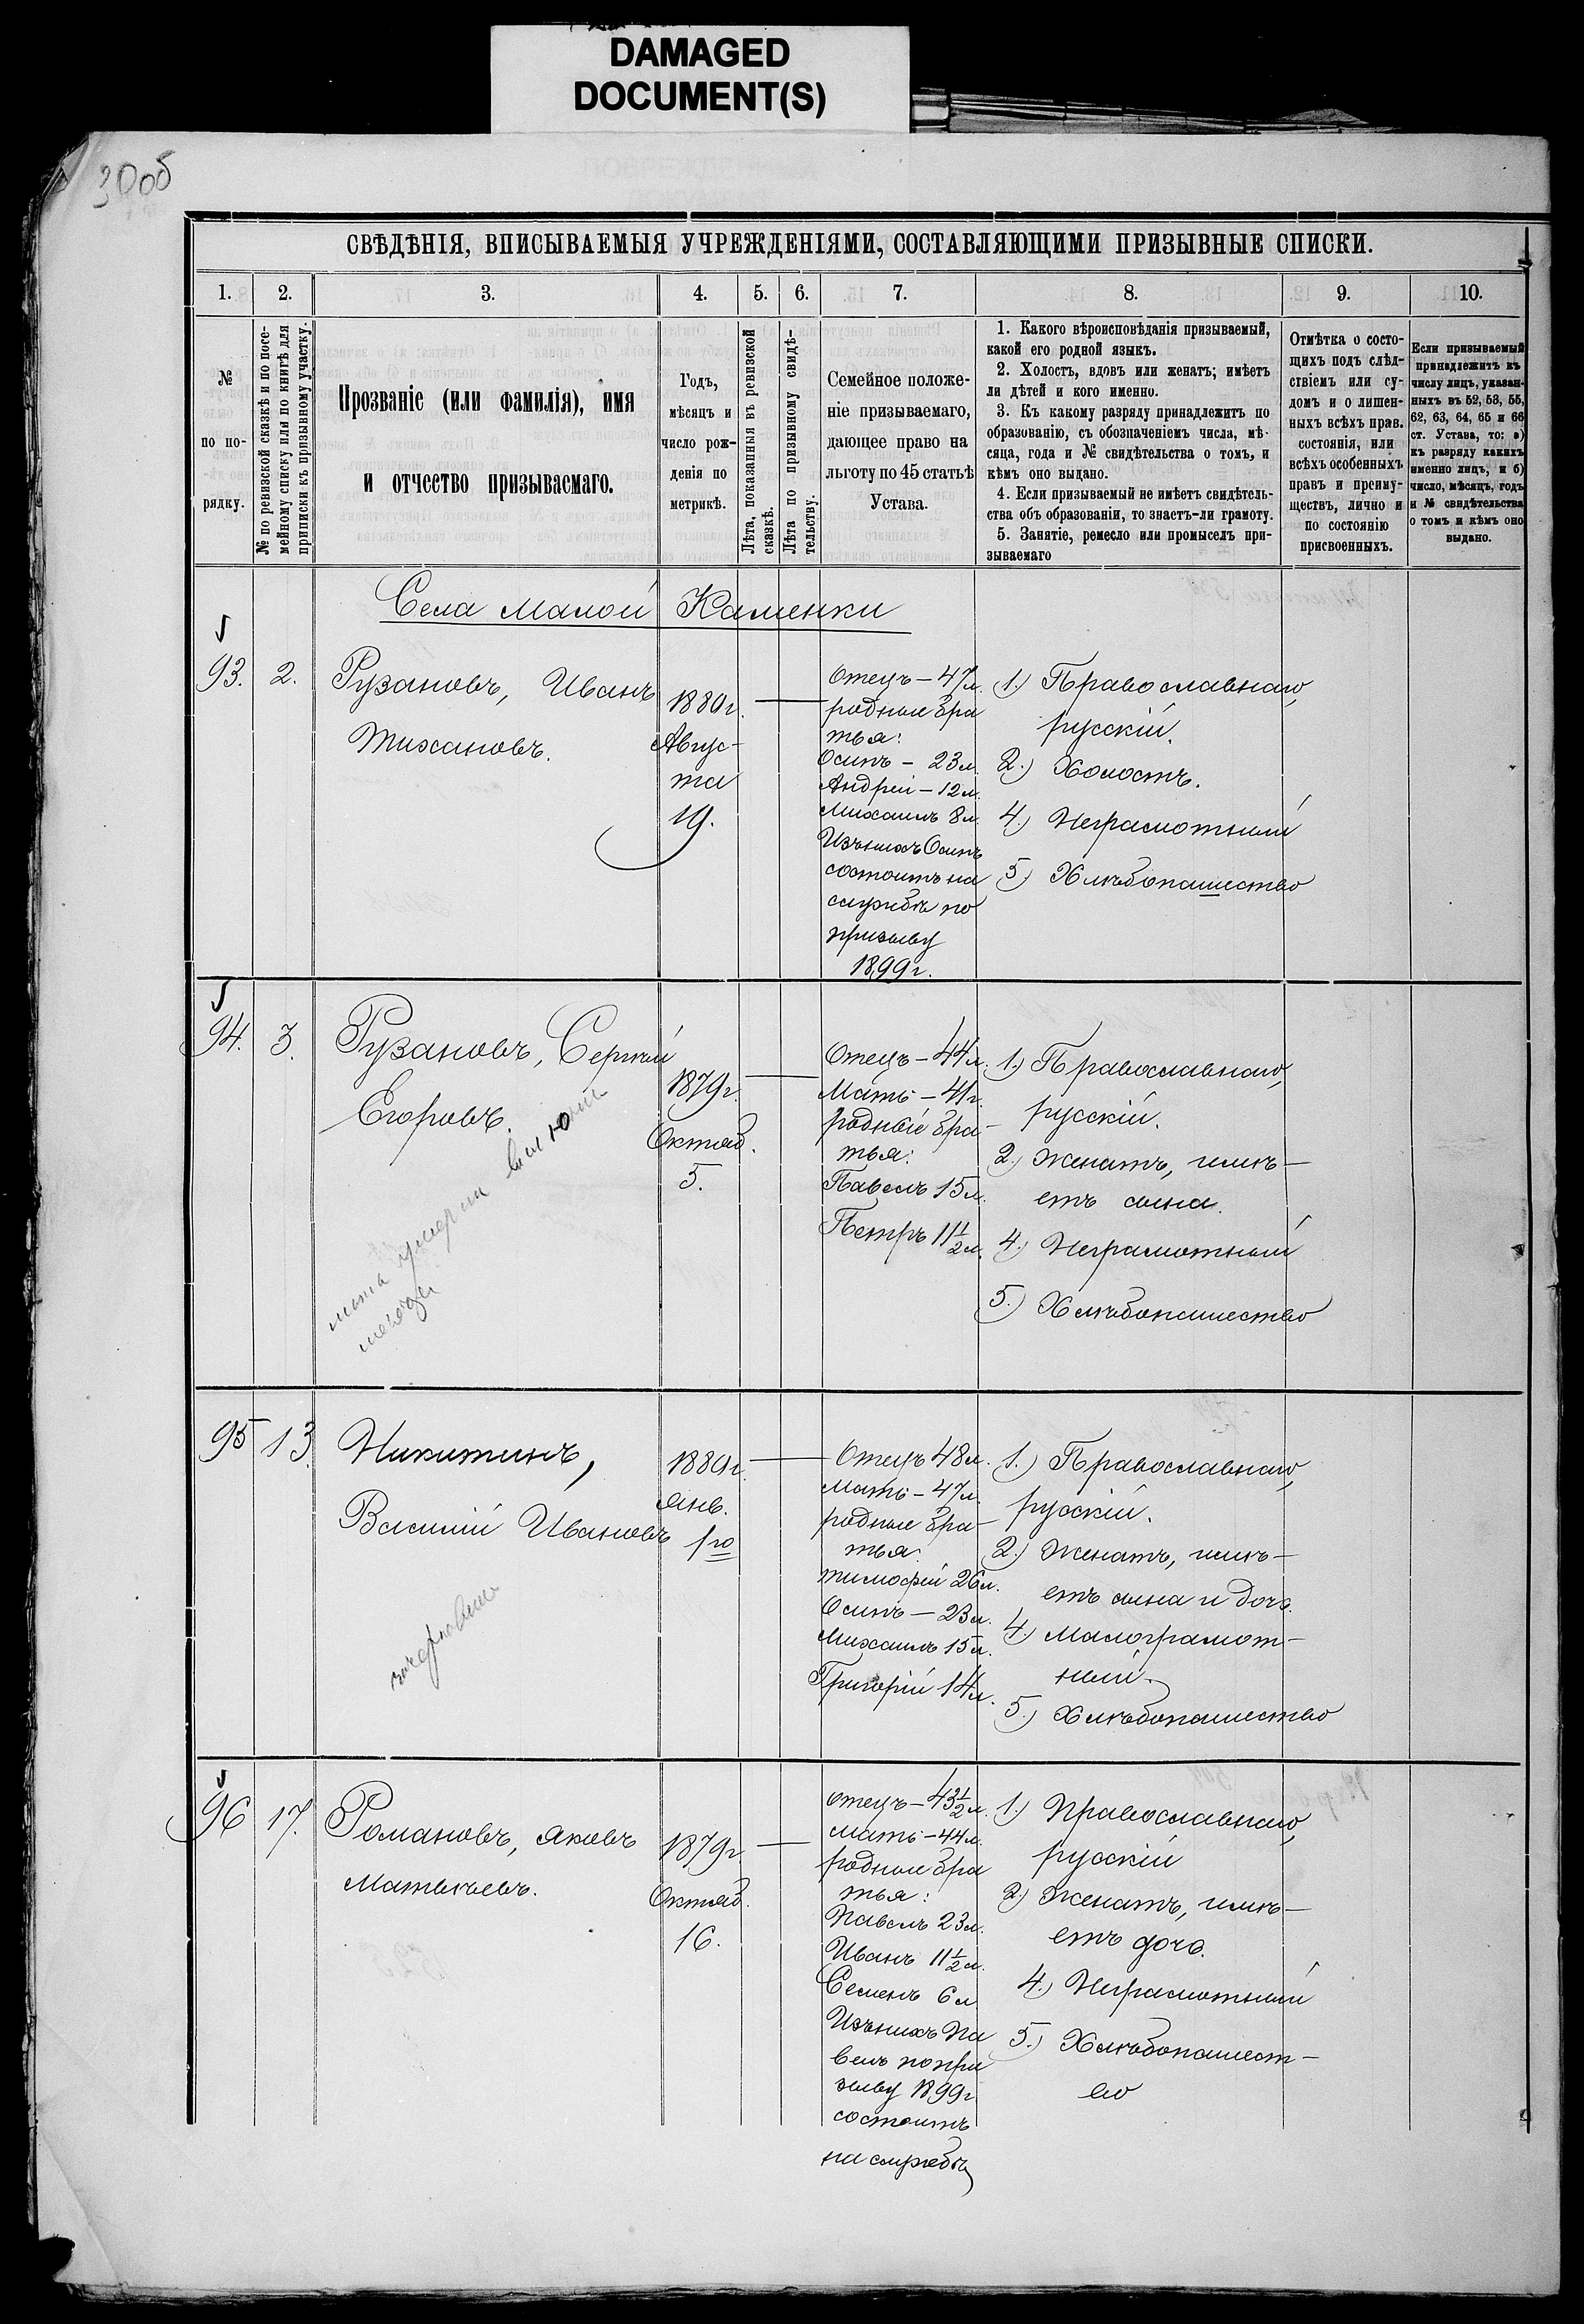 DAMAGED
DOCUMENT(S)
30об
СВѢДѢНІЯ, ВПИСЫВАЕМЫЯ УЧРЕЖДЕНІЯМИ, СОСТАВЛЯЮЩИМИ ПРИЗЫВНЫЕ СПИСКИ.
1. 2. 3. 4. 5. 6. 7. 8. 9. 10.
№
по по-
рядку.
№ по ревизской сказкѣ и по посе-
мейному списку или по книгѣ для
приписки къ призывному участку.
Прозваніе (или фамилія), имя
и отчество призываемаго.
Годъ,
мѣсяцъ и
число рож-
денія по
метрикѣ.
Лѣта, показанныя въ ревизской
сказкѣ.
Лѣта по призывному свидѣ-
тельству.
Семейное положе-
ніе призываемаго,
дающее право на
льготу по 45 статьѣ
Устава.
1. Какого вѣроисповѣданія призываемый,
какой его родной языкъ.
2. Холостъ, вдовъ или женатъ; имѣетъ
ли дѣтей и кого именно.
3. Къ какому разряду принадлежитъ по
образованію, съ обозначеніемъ числа, мѣ-
сяца, года и № свидѣтельства о томъ, и
кѣмъ оно выдано.
4. Если призываемый не имѣетъ свидѣтель-
ства объ образованіи, то знаетъ-ли грамоту.
5. Занятіе, ремесло или промыселъ при-
зываемаго
Отмѣтка о состо-
щихъ подъ слѣд-
ствіемъ или су-
домъ и о лишен-
ныхъ всѣхъ прав.
состоянія, или
всѣхъ особенныхъ
правъ и преиму-
ществъ, лично и
по состоянію
присвоенныхъ.
Если призываемый
принадлежитъ къ
числу лицъ, указан-
ныхъ въ 52, 53, 55,
62, 63, 64, 65 и 66
ст. Устава, то: а)
къ разряду какихъ
именно лицъ, и б)
число, мѣсяцъ, годъ
и № свидѣтельства
о томъ и кѣмъ оно
выдано.
Села Малой Каменки
93. 2.
Рузановъ, Иванъ
Тихановъ.
1880г.
Авгус-
та
19.
Отецъ – 47л.
родные бра
тья:
Осипъ – 23л.
Андрей – 12л.
Михаилъ 8л.
Изъ нихъ Осипъ
состоитъ на
службѣ по
призыву
1899г.
1.) Православнаго,
русскій.
2.) Холостъ.
4.) Неграмотный
5.) Хлѣбопашество
94. 3.
Рузановъ, Сергѣй
Егоровъ.
мать умерла
1879г.
Октяб.
5.
Отецъ – 44л.
Мать – 41г.
родные бра-
тья:
Павелъ 15л.
Петръ 11½л.
1.) Православнаго,
русскій.
2.) Женатъ, имѣ-
етъ сына.
4.) Неграмотный
5.) Хлѣбопашество
95 13.
Никитинъ,
Василій Ивановъ
1880г.
Янв.
1го
Отецъ 48л.
Мать – 47л.
родные бра-
тья:
Тимофей 26л.
Осипъ – 23л.
Михаилъ 15л.
Григорій 14л.
1.) Православнаго,
русскій.
2.) Женатъ, имѣ-
етъ сына и дочь.
4.) Малограмот-
ный.
5.) Хлѣбопашество
96 17.
Романовъ, Яковъ
Матвѣевъ.
1879г.
Октяб.
16.
Отецъ – 43½л.
Мать – 44л.
родные бра
тья:
Павелъ 23л.
Иванъ 11½л.
Семенъ 6л.
Изъ нихъ Па
велъ по при
зыву 1899г.
состоитъ
на службѣ
1.) Православнаго,
русскій
2.) Женатъ, имѣ-
етъ дочь.
4.) Неграмотный
5.) Хлѣбопашест-
во